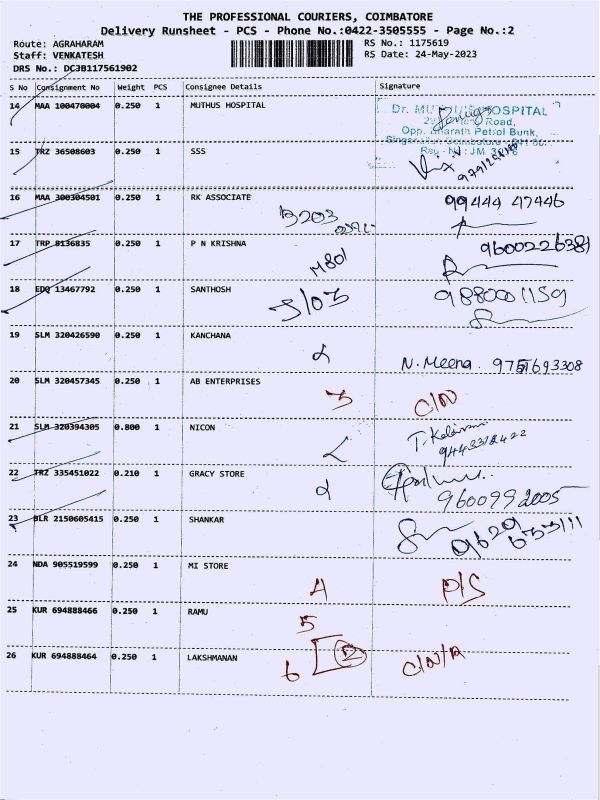 THE PROFESSIONAL COURIERS, COIMBATORE
Delivery Runsheet - PCS - Phone No.:0422-3505555 - Page No.:2
Route: AGRAHARAM
Staff: VENKATESH
DRS No.: DCJB117561902
RS No.: 1175619
RS Date: 24-May-2023
S No Consignment No Weight PCS Consignee Details Signature
14 MAA 100470004 0.250 1 MUTHUS HOSPITAL
Dr. MUTHUS HOSPITAL
Road,
Opp. Bharath Petrol Bunk,
15 TRZ 36508603 0.250 1 SSS
16 MAA 300304501 0.250 1 RK ASSOCIATE 99444 47446
B203
17 TRP 8136835 0.250 1 P N KRISHNA 9600226381
M801
18 EDQ 13467792 0.250 1 SANTHOSH 9880001159
3103
19 SLM 320426590 0.250 1 KANCHANA
N. Meena. 9751693308
20 SLM 320457345 0.250 1 AB ENTERPRISES
3 C/N
21 SLM 320394305 0.800 1 NICON
9443312422
22 TRZ 335451022 0.210 1 GRACY STORE
9600992005
23 BLR 2150605415 0.250 1 SHANKAR
24 NDA 905519599 0.250 1 MI STORE
A P/S
25 KUR 694888466 0.250 1 RAMU
5
26 KUR 694888464 0.250 1 LAKSHMANAN
6 2 C/N/A